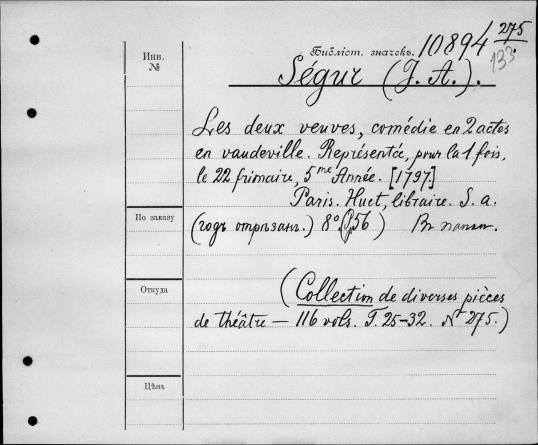 Инв.
№
Библіот. значекъ. 10894 275
133
Ségur (J. A.).
Les deux veuves, comédie en 2 actes
en vaudeville. Représentée, pour la 1 fois,
le 22 frimaire, 5me Année. [1797.]
Paris. Huet, libraire. S. a.
По заказу
(годъ отрѣзан.) 8º. 56)
Откуда
(Collection de diverses pièces
de théâtre — 116 vols. T. 25-32. № 275.)
Цѣна